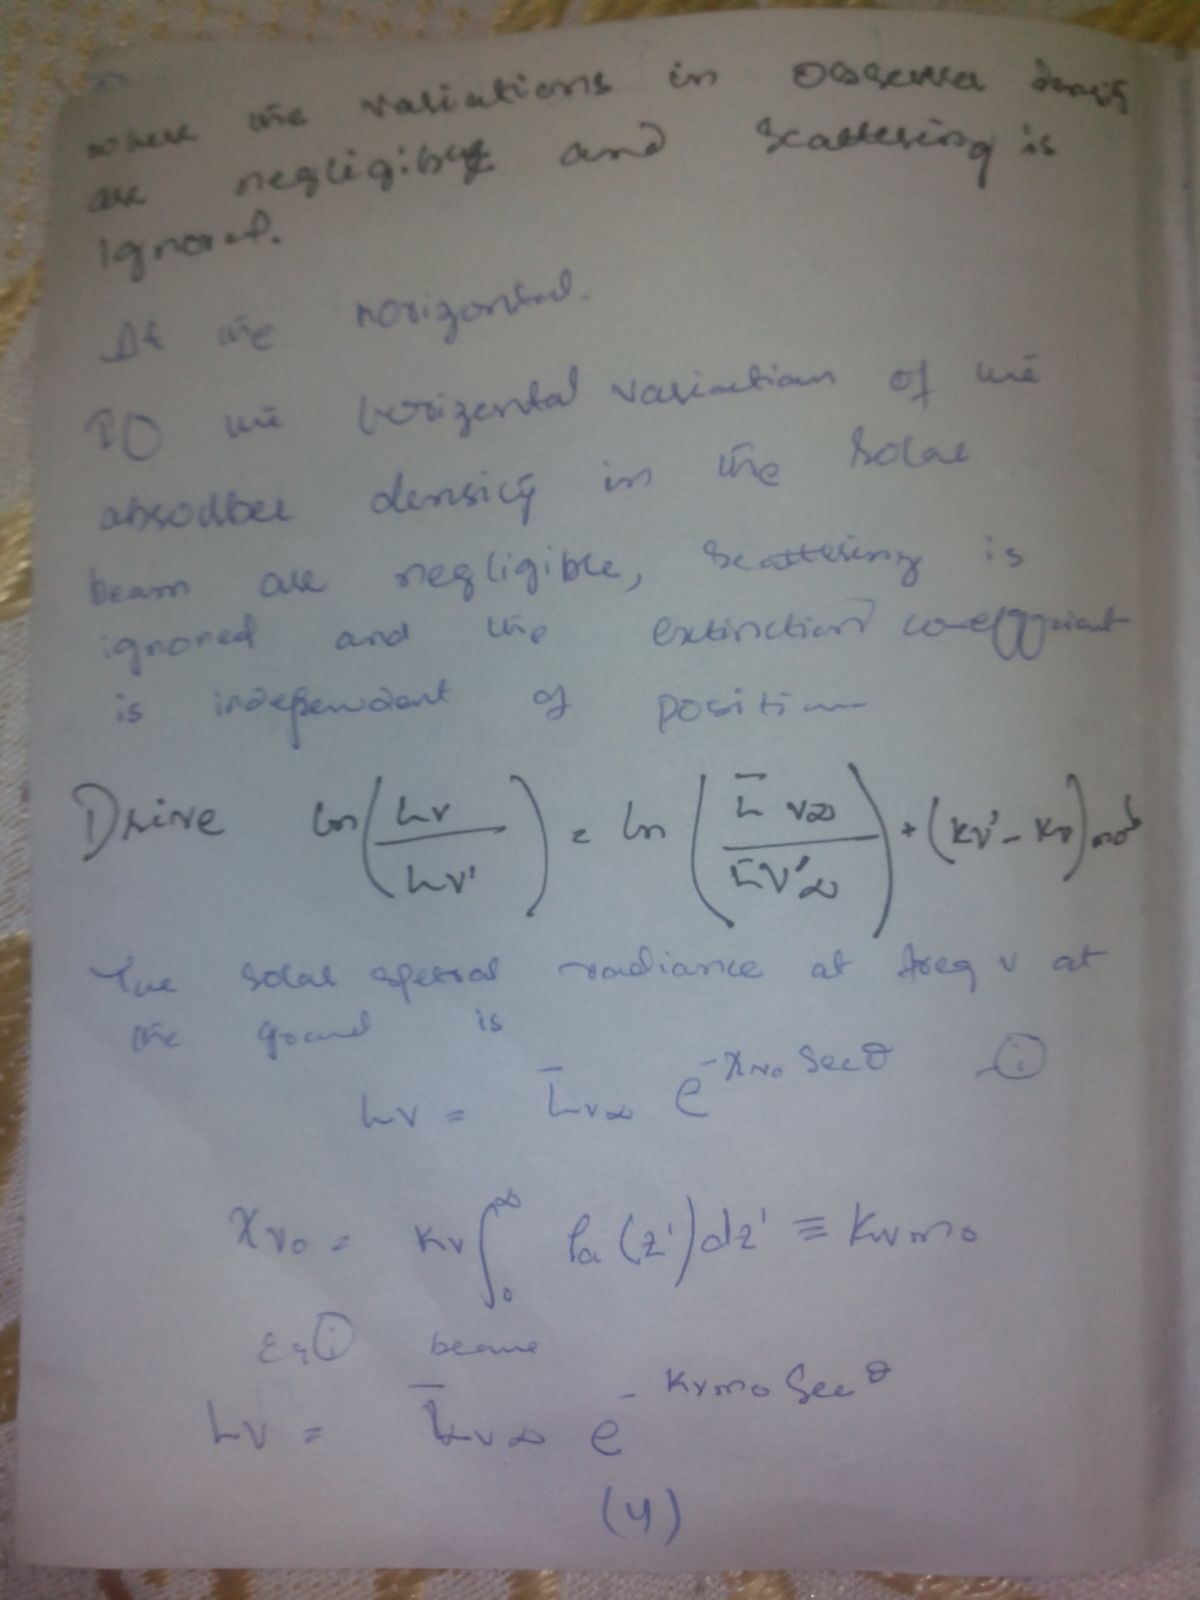 where the variations in observer density
are negligible and scattering is
ignored.
If the horizontal.
If the horizontal variation of the
absorber density in the solar
beam are negligible, scattering is
ignored and the extinction coefficient
is independent of position
Drive ln(Lν / Lν') = ln(L̄ν∞ / L̄ν'∞) + (kν' - kν)m₀s
The solar spectral radiance at freq ν at
the ground is
Lν = L̄ν∞ e^{-χν₀ Secθ} —(i)
χν₀ = kν ∫₀^∞ ρa(z')dz' ≡ kνm₀
Eq (i) became
Lν = L̄ν∞ e^{-kνm₀ Secθ}
(4)